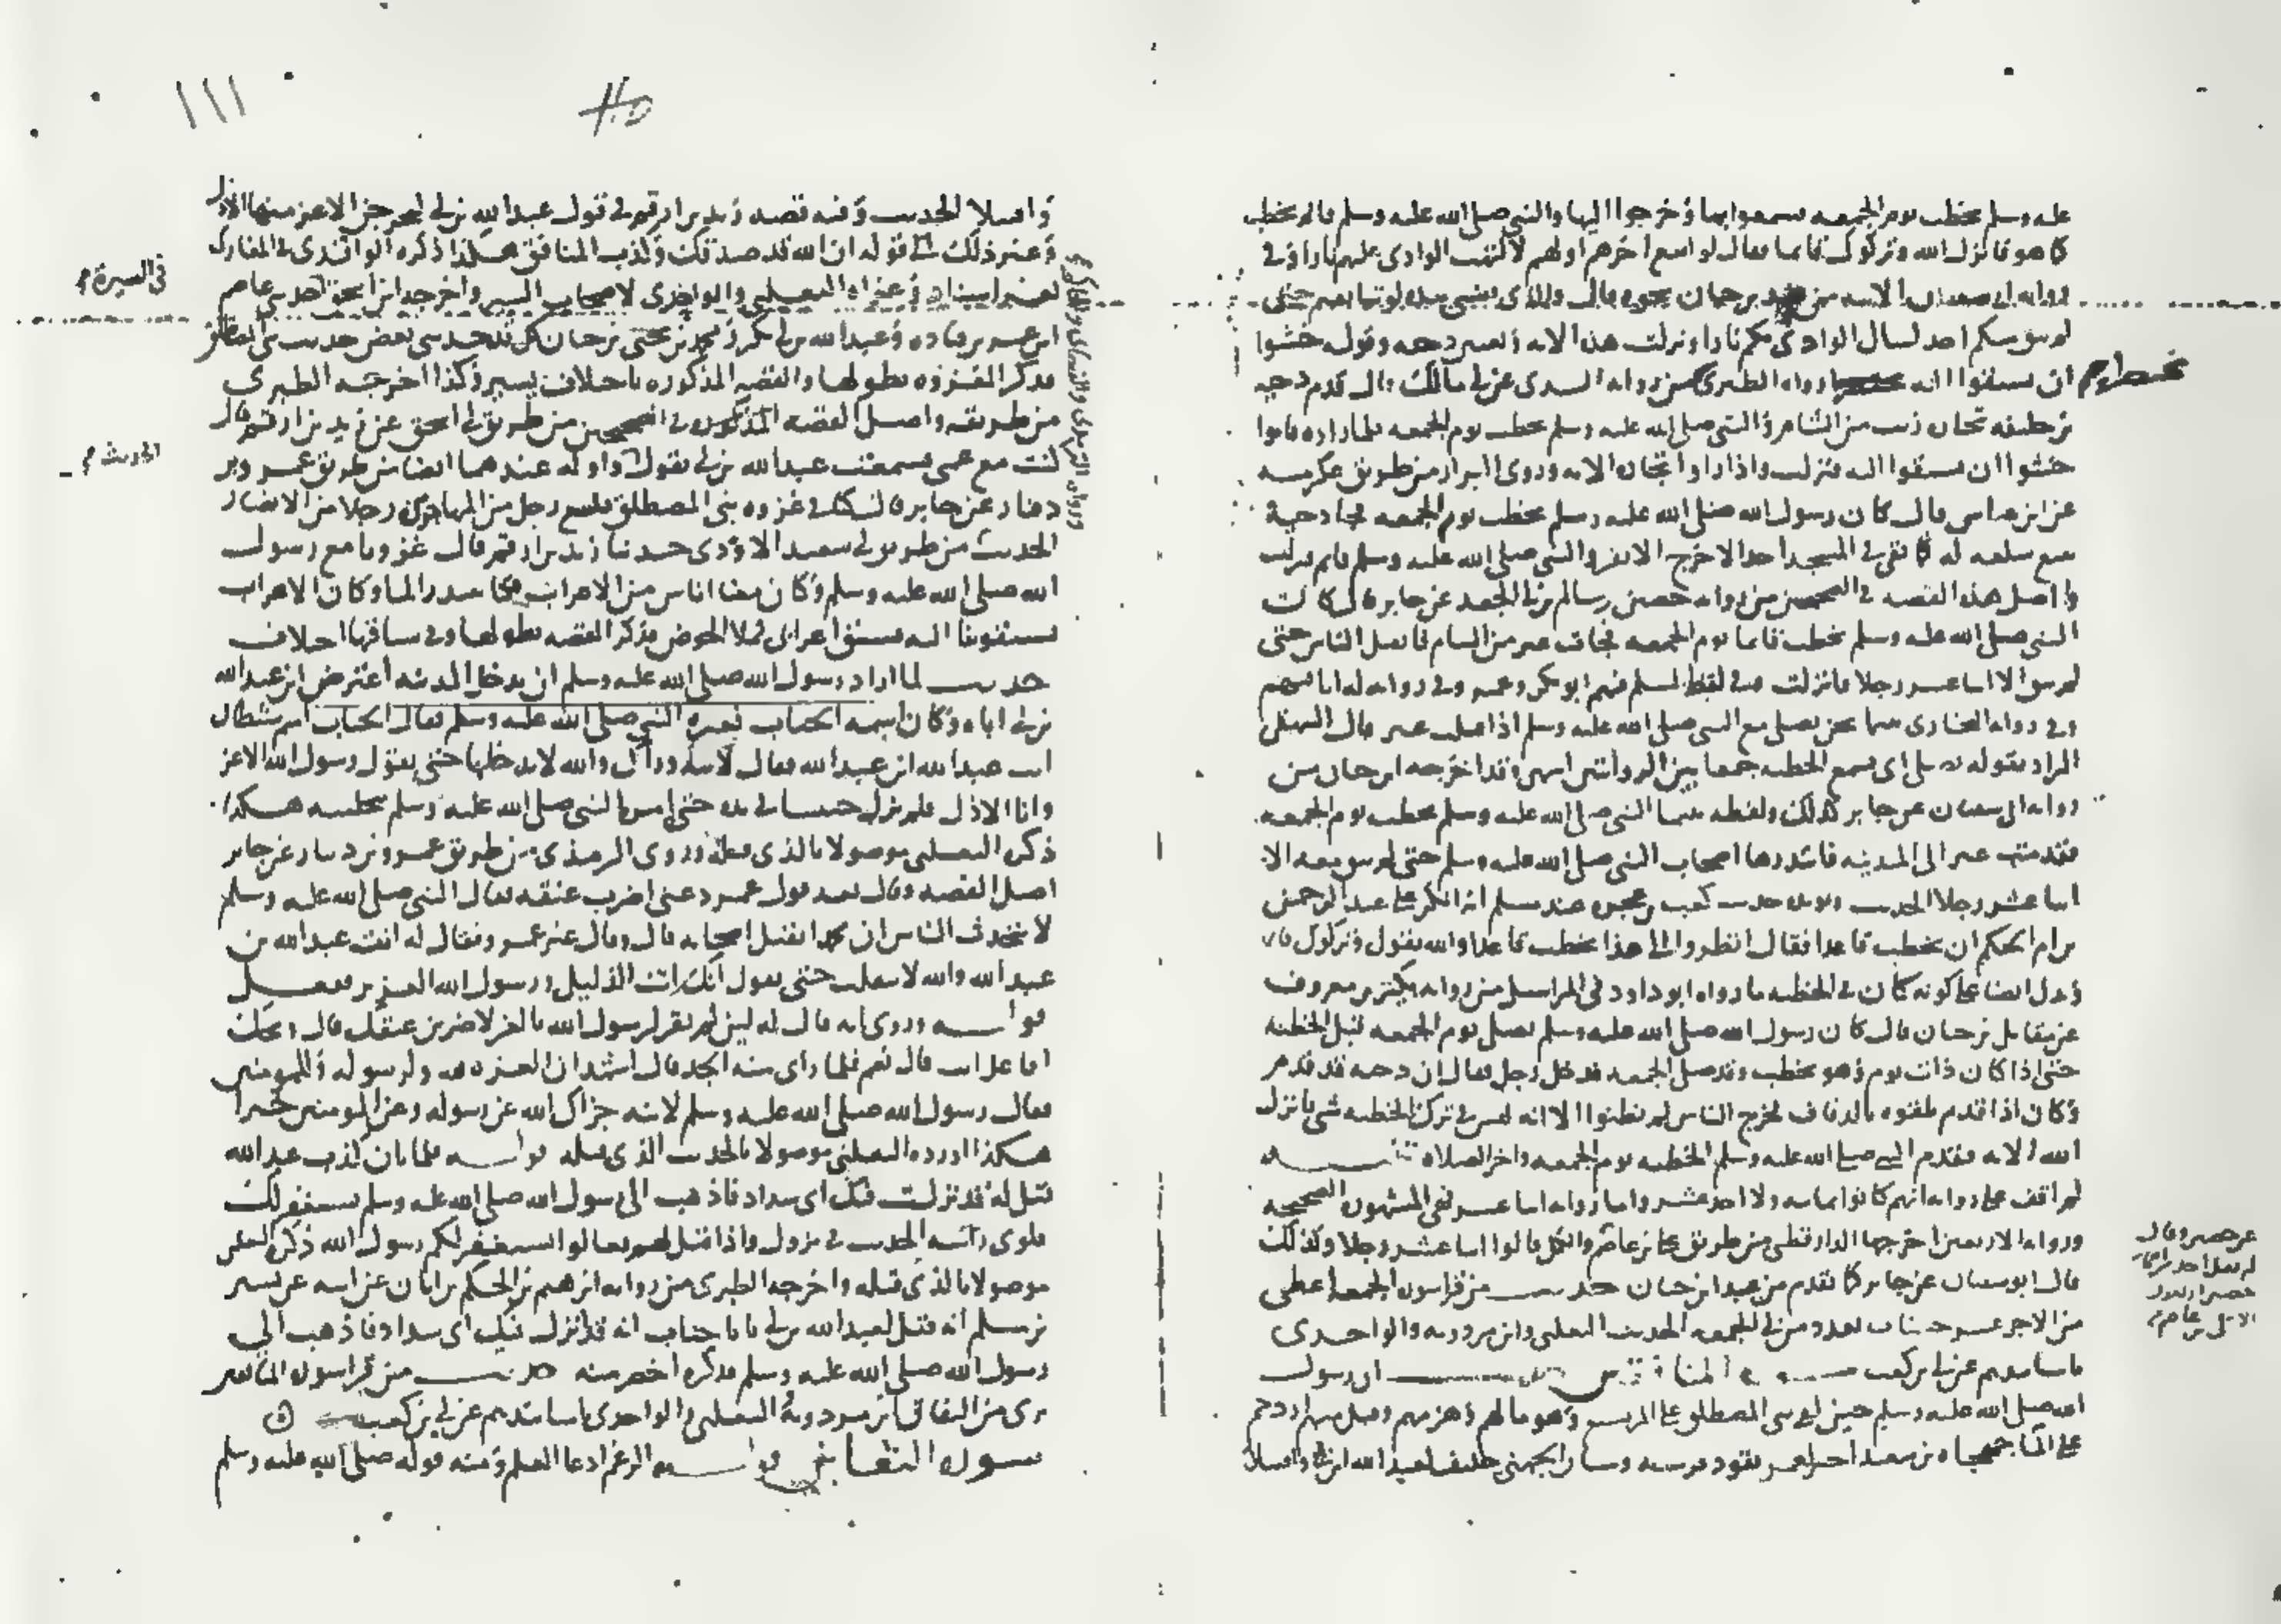 عليه وسلم يخطب يوم الجمعة فسمعوا بها وخرجوا اليها والنبي صلى الله عليه وسلم قائم يخطب
كما هو فانزل الله وتركوك قائما فقال لو اتبع اخرهم اولهم لالتهب الوادي عليهم نارا وفي
لم يبق منكم احد لسال الوادي بكم نارا ونزلت هذه الاية وقوله خشوا
ان يسبقوا اليه رواه الطبري من رواية السدي عن ابي مالك قال قدم دحية
بن خليفة بتجارة زيت من الشام والنبي صلى الله عليه وسلم يخطب يوم الجمعة فلما راوه قاموا
خشوا ان يسبقوا اليه فنزلت واذا راوا تجارة الاية وروى البزار من طريق عكرمة
عن ابن عباس قال كان رسول الله صلى الله عليه وسلم يخطب يوم الجمعة فجا دحية
يبيع سلعة له فما بقي في المسجد احد الا خرج الا نفر والنبي صلى الله عليه وسلم قائم فنزلت
واصل هذه القصة في الصحيحين من رواية حصين عن سالم بن ابي الجعد عن جابر قال كانت
النبي صلى الله عليه وسلم يخطب قائما يوم الجمعة فجات عير من الشام فانفتل الناس حتى
لم يبق الا اثنا عشر رجلا فانزلت وفي لفظ لمسلم فيهم ابو بكر وعمر وفي رواية له انا فيهم
وفي رواية البخاري بينما نحن نصلي مع النبي صلى الله عليه وسلم اذ اقبلت عير قال البيهقي
المراد بقوله نصلي اي نسمع الخطبة جمعا بين الروايتين انتهى وقد اخرجه ابن حبان من
رواية ابي سفيان عن جابر كذلك ولفظه بينا النبي صلى الله عليه وسلم يخطب يوم الجمعة
فقدمت عير الى المدينة فابتدرها اصحاب النبي صلى الله عليه وسلم حتى لم يبق معه الا
اثنا عشر رجلا الحديث حديث كعب بن عجرة عند مسلم انه انكر على عبد الرحمن
بن ام الحكم ان يخطب قاعدا فقال انظروا الى هذا يخطب قاعدا والله يقول وتركوك قا
ويدل ايضا على كونه كان في الخطبة ما رواه ابو داود في المراسيل من رواية بكير بن معروف
عن مقاتل بن حيان قال كان رسول الله صلى الله عليه وسلم يصلي يوم الجمعة قبل الخطبة
حتى اذا كان ذات يوم وهو يخطب وقد صلى الجمعة فدخل رجل فقال ان دحية قد قدم
وكان اذا قدم تلقوه بالدفاف فخرج الناس لم يظنوا الا انه ليس في ترك الخطبة شي فانزل
الله الاية فقدم النبي صلى الله عليه وسلم الخطبة يوم الجمعة واخر الصلاة تنبيه
لم اقف على رواية انهم كانوا ثمانية ولا احد عشر واما رواية اثنا عشر ففي المشهورة الصحيحة
ورواية الاربعين اخرجها الدارقطني من طريق علي بن عاصم والكل قالوا اثنا عشر رجلا وكذلك
قال ابو سفيان عن جابر كما تقدم من عند ابن حبان حديث من قرا سورة الجمعة اعطي
من الاجر عشر حسنات بعدد من اتى الجمعة الحديث الثعلبي وابن مردويه والواحدي
باسانيدهم عن ابي بن كعب سورة المنافقين ان رسول
الله صلى الله عليه وسلم حين لقي بني المصطلق على المريسيع وهو ما لهم وهزمهم وقتل منهم ازدحم
على الما جهجاه بن سعيد اجير لعمر يقود فرسه وسنان الجهني حليف لعبد الله ابن ابي واقتتلا
خطا م
عن حصين وقال
لم يقل احد
حصين اربعون
الا علي بن عاصم
١١١
واقتتلا الحديث وفيه قصة زيد بن ارقم في قول عبد الله بن ابي ليخرجن الاعز منها الاذل
وغير ذلك الى قوله ان الله قد صدقك وكذب المنافق هكذا ذكره الواقدي في المغازي
بغير اسناد وعزاه الثعلبي والواحدي لاصحاب السير واخرجه ابن اسحق حدثني عاصم
ابن عمر بن قتادة وعبد الله بن ابي بكر ومحمد بن يحيى بن حبان كل قد حدثني بعض حديث بني المصطلق
فذكر الغزوة بطولها والقصة المذكورة باختلاف يسير وكذا اخرجه الطبري
من طريقه واصل القصة المذكورة في الصحيحين من طريق ابي اسحق عن زيد بن ارقم قال
كنت مع عمي فسمعت عبد الله بن ابي يقول واوله عندهما ايضا من طريق عمرو بن
دينار عن جابر قال كنا في غزوة بني المصطلق فكسع رجل من المهاجرين رجلا من الانصار
الحديث من طريق ابي سعيد الازدي حدثنا زيد بن ارقم قال غزونا مع رسول
الله صلى الله عليه وسلم وكان معنا اناس من الاعراب فكنا نبتدر الما وكان الاعراب
يسبقوننا اليه فسبق اعرابي فملا الحوض فذكر القصة بطولها وفي سياقها اختلاف
حديث لما اراد رسول الله صلى الله عليه وسلم ان يدخل المدينة اعترض ابن عبد الله
بن ابي اباه وكان اسمه الحباب فغيره النبي صلى الله عليه وسلم فقال الحباب اسم شيطان
انت عبد الله ابن عبد الله فقال لابيه وراك والله لا تدخلها حتى تقول رسول الله الاعز
وانا الاذل فلم يزل حبيسا في يده حتى امره النبي صلى الله عليه وسلم بتخليته هكذا
ذكره الثعلبي موصولا بالذي قبله وروى الترمذي من طريق عمرو بن دينار عن جابر
اصل القصة وقال بعد قول عمر دعني اضرب عنقه فقال النبي صلى الله عليه وسلم
لا يتحدث الناس ان محمدا يقتل اصحابه قال وقال غير عمرو فقال له ابنه عبد الله بن
عبد الله والله لا تنقلب حتى تقول انك انت الذليل ورسول الله العزيز ففعل
قوله وروي انه قال له لئن لم تقر لرسول الله بالعز لاضربن عنقك قال ويحك
افاعل انت قال نعم فلما راى منه الجد قال اشهد ان العزة لله ولرسوله وللمومنين
فقال رسول الله صلى الله عليه وسلم لابنه جزاك الله عن رسوله وعن المومنين خيرا
هكذا اورده الثعلبي موصولا بالحديث الذي قبله قوله فلما بان كذب عبد الله
قيل له قد نزلت فيك اي شداد فاذهب الى رسول الله صلى الله عليه وسلم يستغفر لك
فلوى راسه الحديث في نزول واذا قيل لهم تعالوا يستغفر لكم رسول الله ذكره الثعلبي
موصولا بالذي قبله واخرجه الطبري من رواية ابراهيم بن الحكم بن ابان عن ابيه عن بشير
بن مسلم انه قيل لعبد الله بن ابي يا ابا حباب انه قد انزل فيك اي شداد فاذهب الى
رسول الله صلى الله عليه وسلم فذكره اخصر منه حديث من قرا سورة المنافقين
برئ من النفاق ابن مردويه والثعلبي والواحدي باسانيدهم عن ابي بن كعب
سورة التغابن قوله الزعم ادعا العلم ومنه قوله صلى الله عليه وسلم
في السيرة م
الحديث م